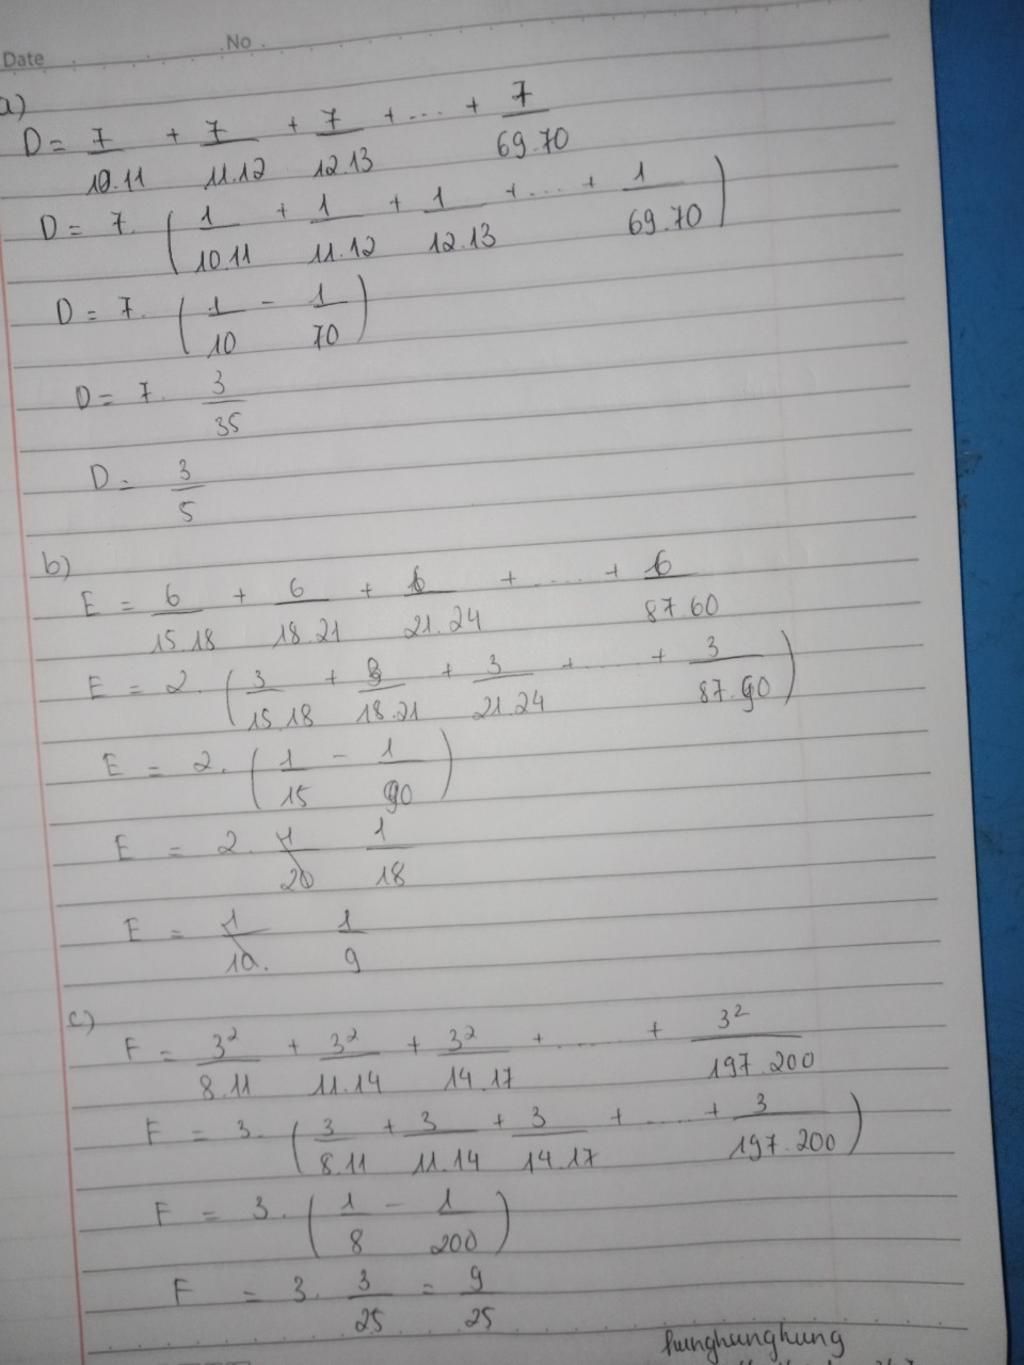 Date No.
a)
D = 7/10.11 + 7/11.12 + 7/12.13 + ... + 7/69.70
D = 7. (1/10.11 + 1/11.12 + 1/12.13 + ... + 1/69.70)
D = 7. (1/10 - 1/70)
D = 7. 3/35
D = 3/5
b)
E = 6/15.18 + 6/18.21 + 6/21.24 + .... + 6/87.60
E = 2. (3/15.18 + 3/18.21 + 3/21.24 + .... + 3/87.90)
E = 2. (1/15 - 1/90)
E = 2. 1/20 1/18
E = 1/10. 1/9
c)
F = 3²/8.11 + 3²/11.14 + 3²/14.17 + ..... + 3²/197.200
F = 3. (3/8.11 + 3/11.14 + 3/14.17 + .... + 3/197.200)
F = 3. (1/8 - 1/200)
F = 3. 3/25 = 9/25
hunghunghung